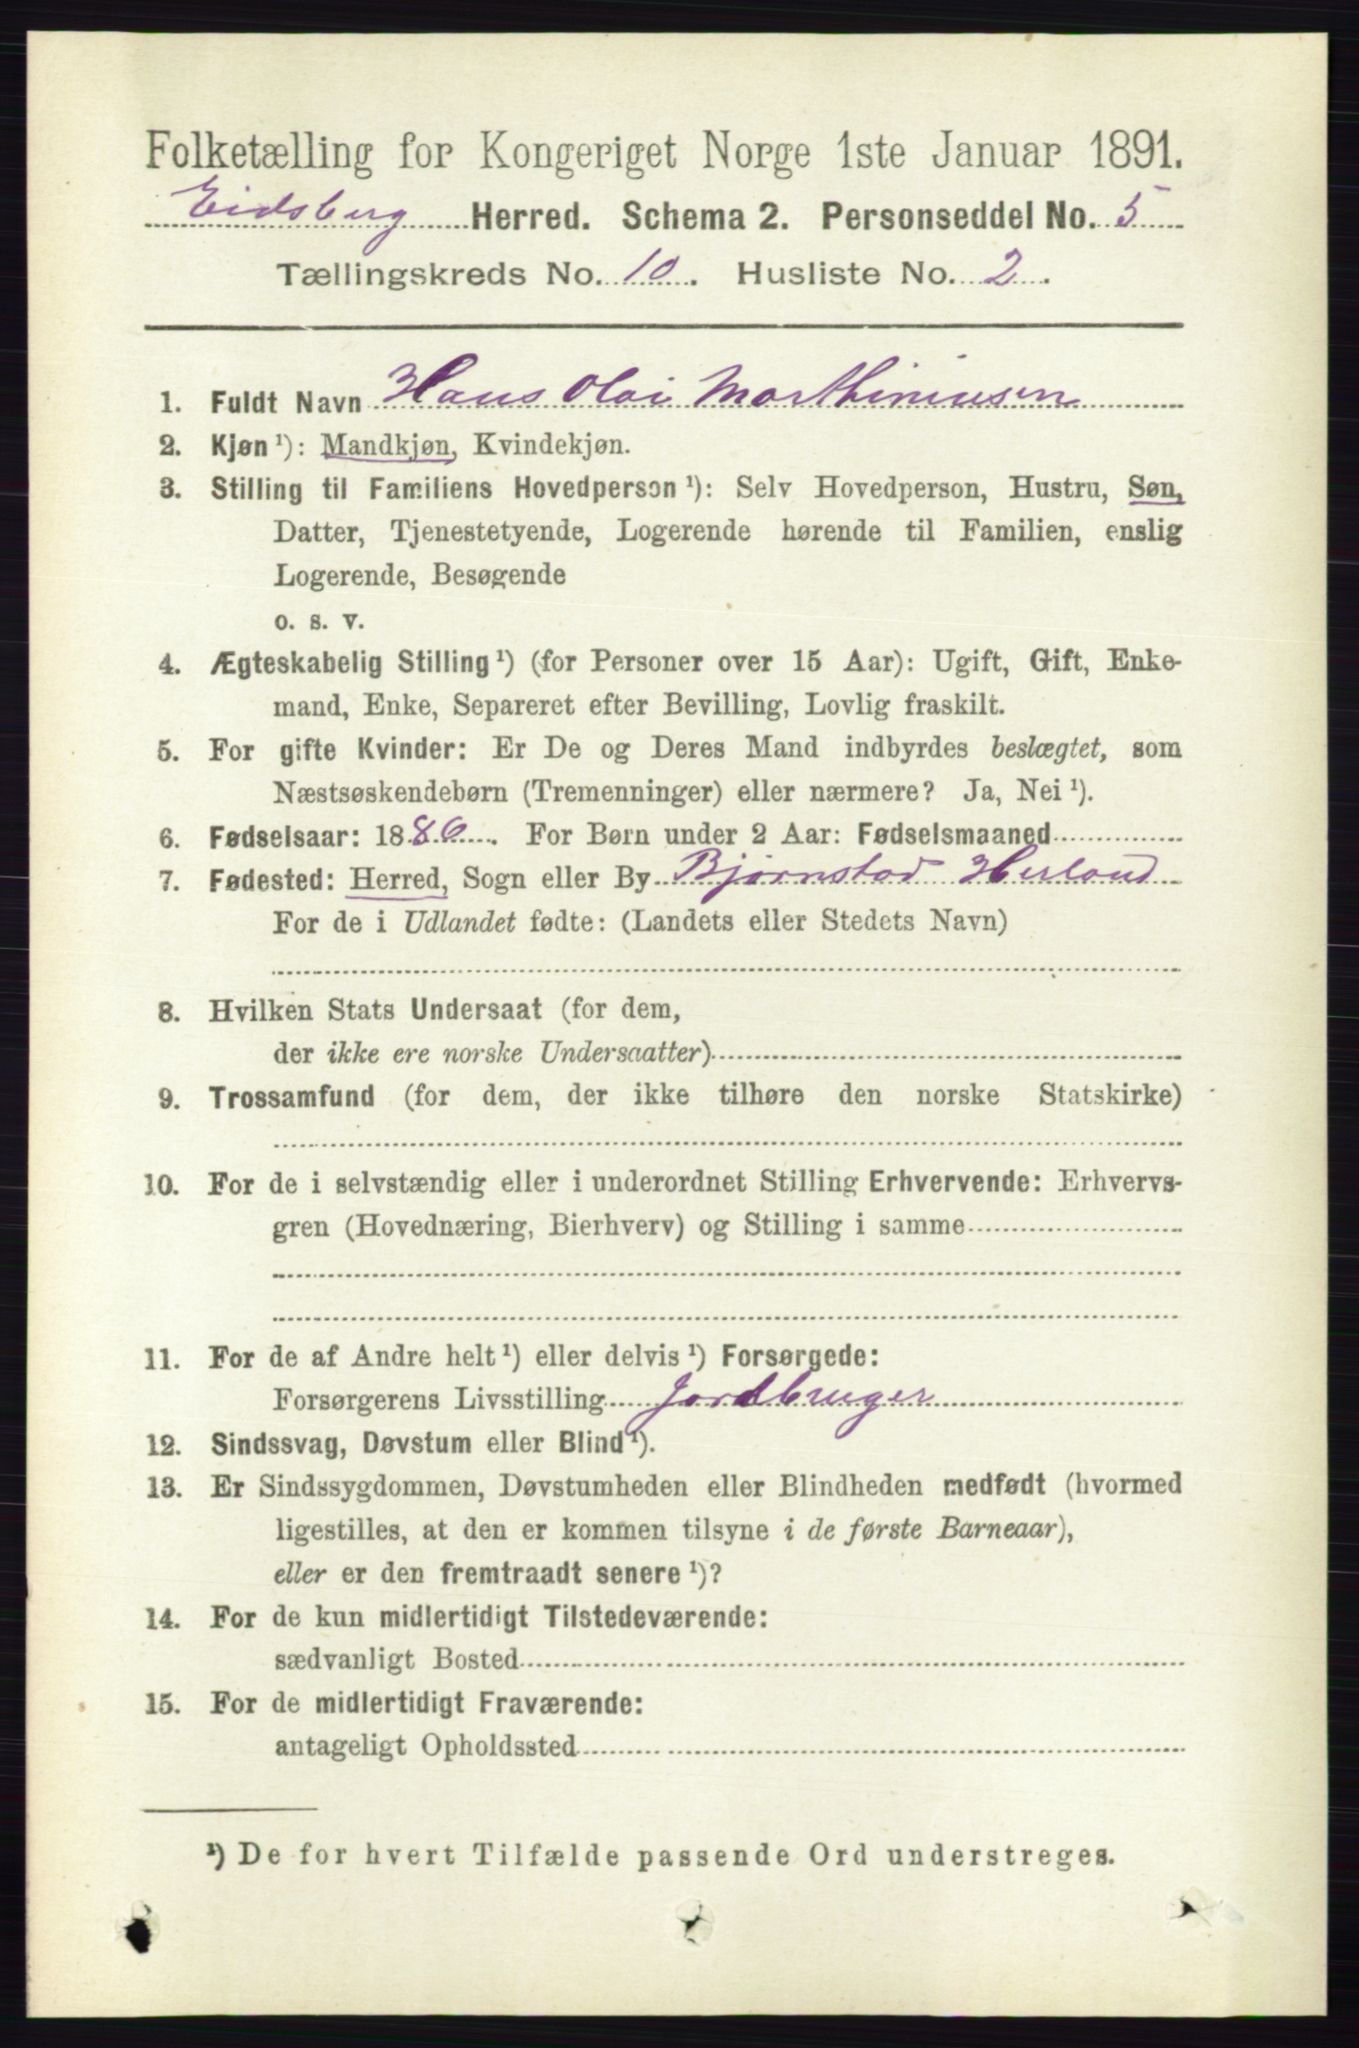 Folketælling for Kongeriget Norge 1ste Januar 1891.
Eidsberg Herred. Schema 2. Personseddel No. 5
Tællingskreds No. 10. Husliste No. 2.
1. Fuldt Navn Hans Olai Marthiniusen
2. Kjøn ¹): Mandkjøn, Kvindekjøn.
3. Stilling til Familiens Hovedperson ¹): Selv Hovedperson, Hustru, Søn,
Datter, Tjenestetyende, Logerende hørende til Familien, enslig
Logerende, Besøgende
o. s. v.
4. Ægteskabelig Stilling ¹) (for Personer over 15 Aar): Ugift, Gift, Enke-
mand, Enke, Separeret efter Bevilling, Lovlig fraskilt.
5. For gifte Kvinder: Er De og Deres Mand indbyrdes beslægtet, som
Næstsøskendebørn (Tremenninger) eller nærmere? Ja, Nei ¹).
6. Fødselsaar: 1886. For Børn under 2 Aar: Fødselsmaaned
7. Fødested: Herred, Sogn eller By Bjørnstad Herland
For de i Udlandet fødte: (Landets eller Stedets Navn)
8. Hvilken Stats Undersaat (for dem,
der ikke ere norske Undersaatter)
9. Trossamfund (for dem, der ikke tilhøre den norske Statskirke)
10. For de i selvstændig eller i underordnet Stilling Erhvervende: Erhvervs-
gren (Hovednæring, Bierhverv) og Stilling i samme
11. For de af Andre helt ¹) eller delvis ¹) Forsørgede:
Forsørgerens Livsstilling Jordbruger
12. Sindssvag, Døvstum eller Blind ¹).
13. Er Sindssygdommen, Døvstumheden eller Blindheden medfødt (hvormed
ligestilles, at den er kommen tilsyne i de første Barneaar),
eller er den fremtraadt senere ¹)?
14. For de kun midlertidigt Tilstedeværende:
sædvanligt Bosted
15. For de midlertidigt Fraværende:
antageligt Opholdssted
¹) De for hvert Tilfælde passende Ord understreges.